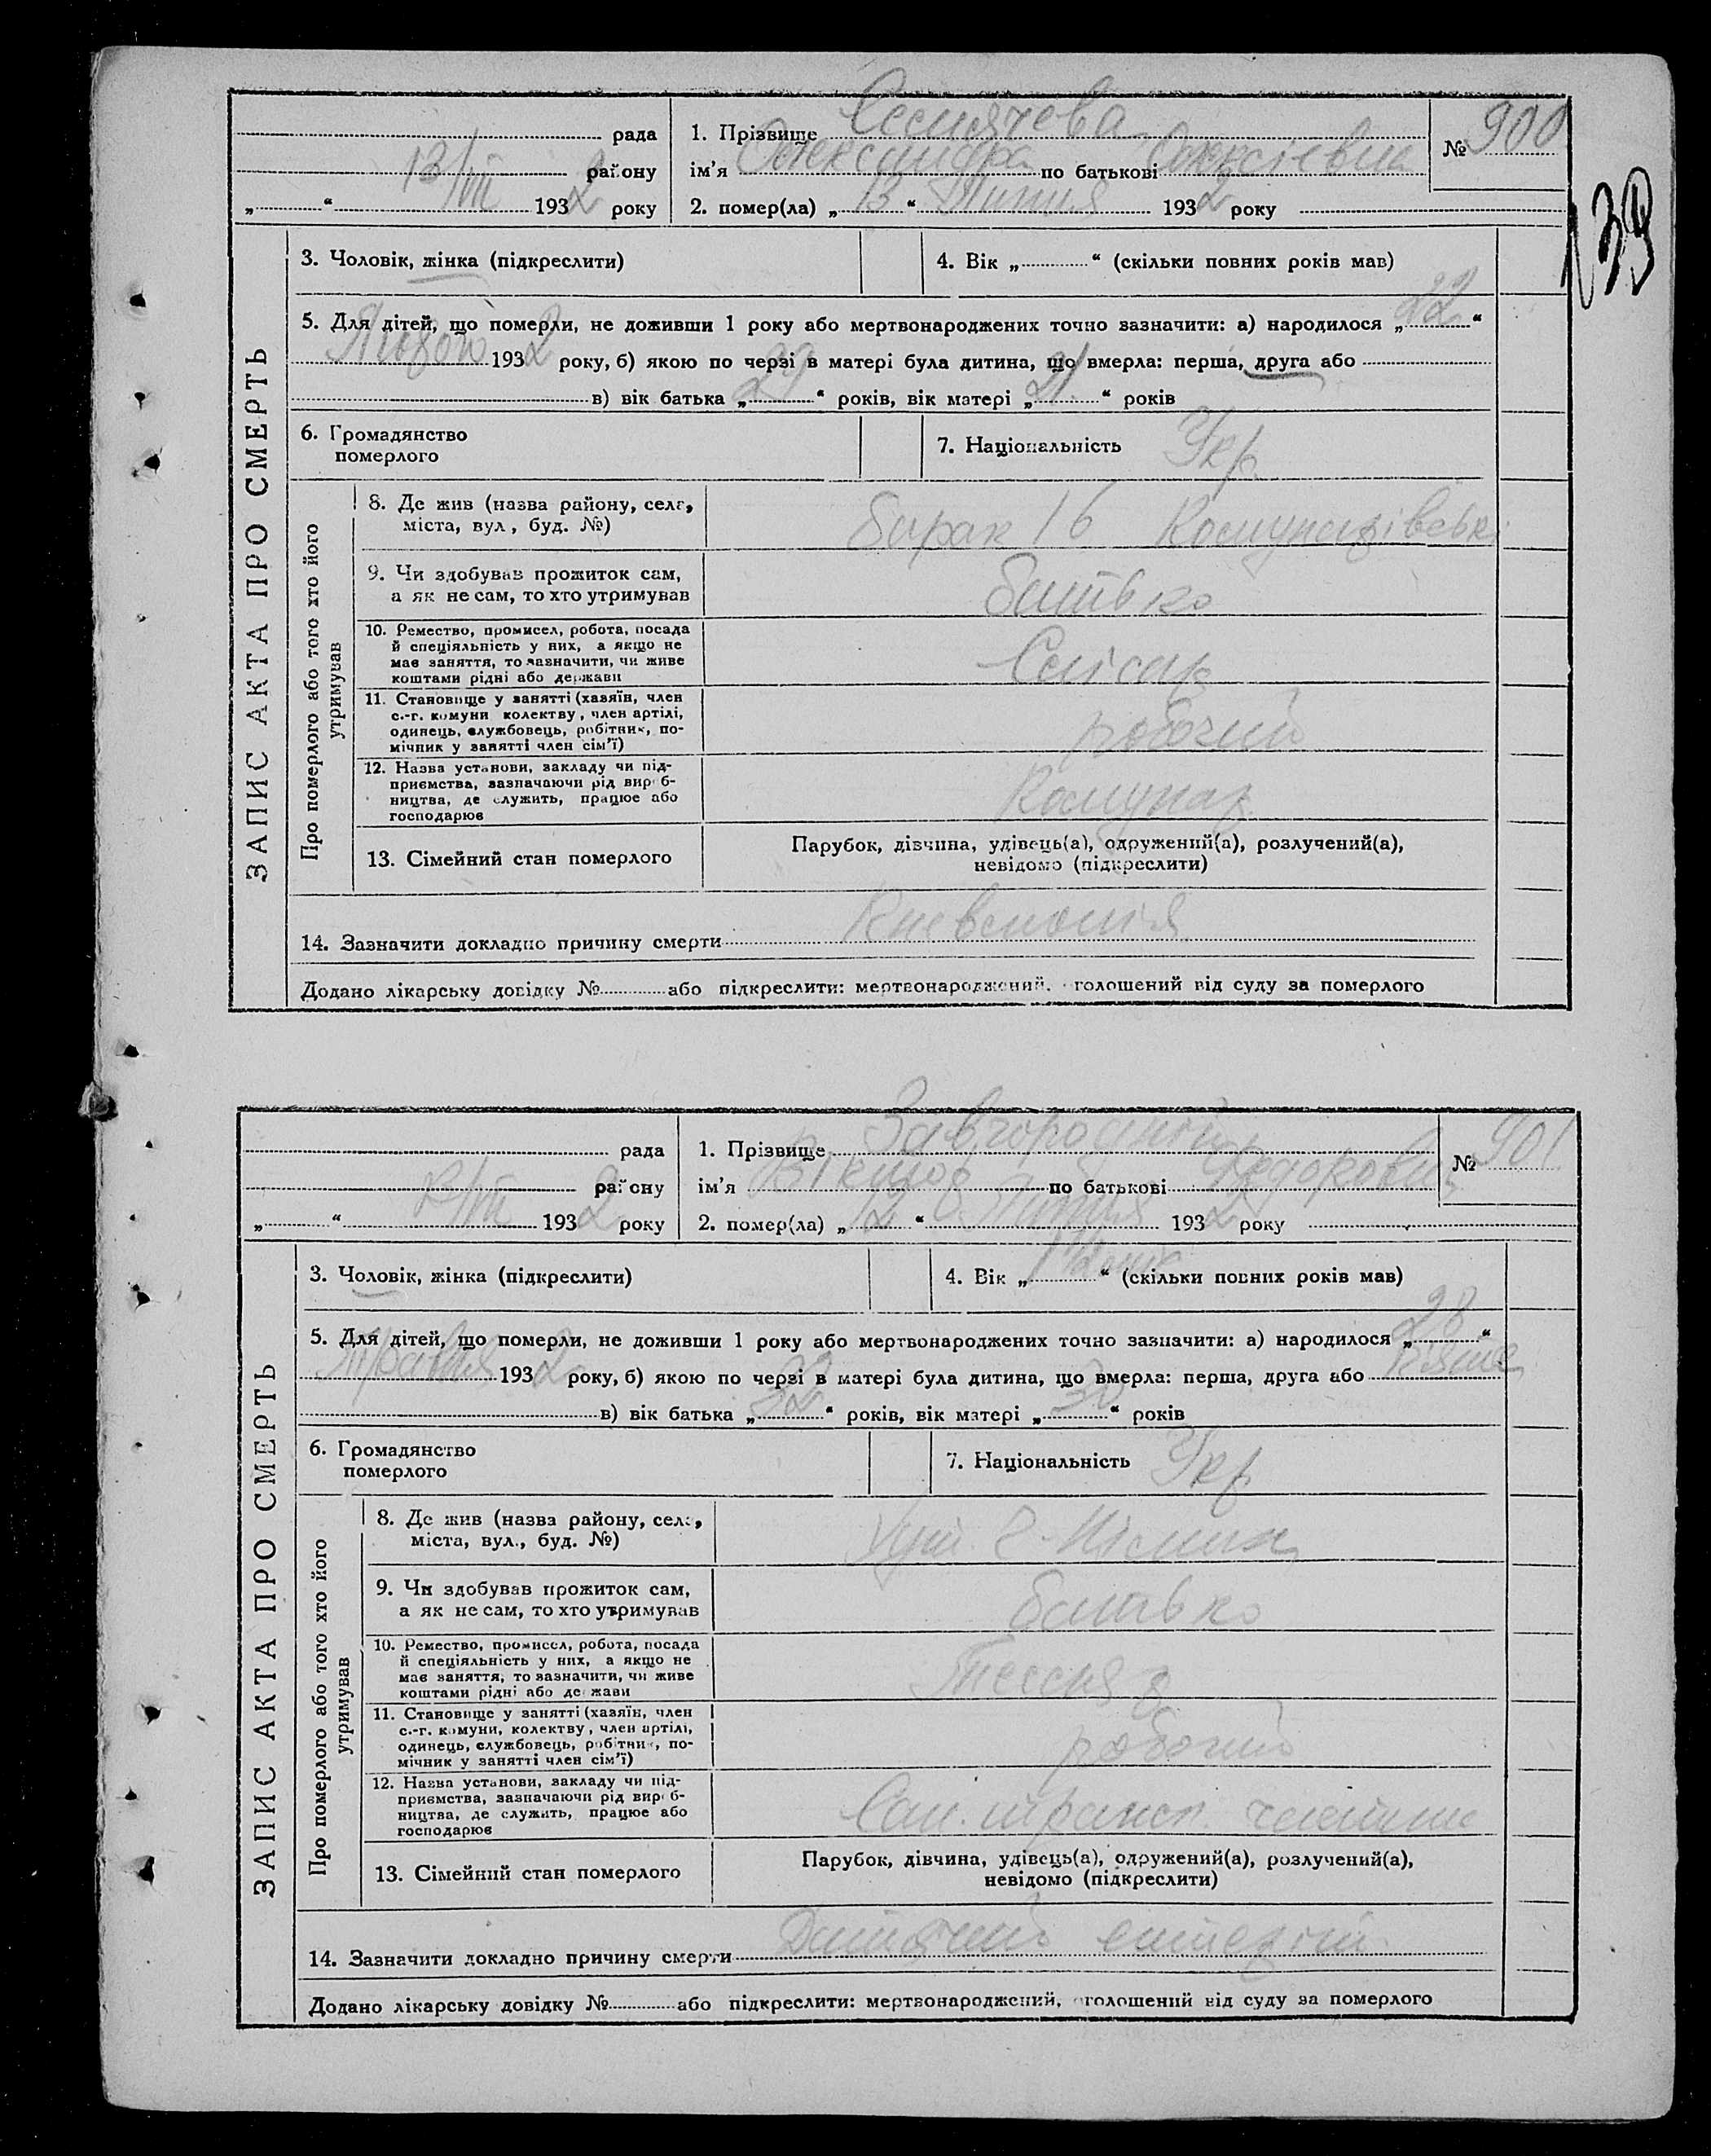 рада
13/VII району
„ “ 1932 року
1. Прізвище
ім'я Олександра по батькові Олексіевна
2. помер(ла) „13“ Липня 1932 року
№ 900
139
ЗАПИС АКТА ПРО СМЕРТЬ
3. Чоловік, жінка (підкреслити)
4. Вік „ “ (скільки повних років мав)
5. Для дітей, що померли, не доживши 1 року або мертвонароджених точно зазначити: а) народилося „22“
Лютого 1932 року, б) якою по черзі в матері була дитина, що вмерла: перша, друга або
в) вік батька „ “ років, вік матері „21“ років
6. Громадянство
померлого
7. Національність Укр
Про померлого або того хто його
утримував
8. Де жив (назва району, села,
міста, вул., буд. №)
барак 16
9. Чи здобував прожиток сам,
а як не сам, то хто утримував
батько
10. Ремество, промисел, робота, посада
й спеціяльність у них, а якщо не
має заняття, то зазначити, чи живе
коштами рідні або держави
Слісар
11. Становище у занятті (хазяїн, член
с.-г. комуни колектву, член артілі,
одинець, службовець, робітник, по-
мічник у занятті член сім'ї)
робочий
12. Назва установи, закладу чи під-
приємства, зазначаючи рід вироб-
ництва, де служить, працює або
господарює
Комунар
13. Сімейний стан померлого
Парубок, дівчина, удівець(а), одружений(а), розлучений(а),
невідомо (підкреслити)
14. Зазначити докладно причину смерти Пневмонія
Додано лікарську довідку № або підкреслити: мертвонароджений, оголошений від суду за померлого
рада
району
„ “ 1932 року
1. Прізвище Завгородній
ім'я Віктор по батькові Федорович
2. помер(ла) „12“ Липня 1932 року
№ 901
ЗАПИС АКТА ПРО СМЕРТЬ
3. Чоловік, жінка (підкреслити)
4. Вік „ “ (скільки повних років мав)
5. Для дітей, що померли, не доживши 1 року або мертвонароджених точно зазначити: а) народилося „28“
1932 року, б) якою по черзі в матері була дитина, що вмерла: перша, друга або
в) вік батька „32“ років, вік матері „30“ років
6. Громадянство
померлого
7. Національність Укр
Про померлого або того хто його
утримував
8. Де жив (назва району, села,
міста, вул., буд. №)
9. Чи здобував прожиток сам,
а як не сам, то хто утримував
батько
10. Ремество, промисел, робота, посада
й спеціяльність у них, а якщо не
має заняття, то зазначити, чи живе
коштами рідні або держави
Тесляр
11. Становище у занятті (хазяїн, член
с.-г. комуни, колектву, член артілі,
одинець, службовець, робітник, по-
мічник у занятті член сім'ї)
робочий
12. Назва установи, закладу чи під-
приємства, зазначаючи рід вироб-
ництва, де служить, працює або
господарює
13. Сімейний стан померлого
Парубок, дівчина, удівець(а), одружений(а), розлучений(а),
невідомо (підкреслити)
14. Зазначити докладно причину смерти Дитячий
Додано лікарську довідку № або підкреслити: мертвонароджений, оголошений від суду за померлого